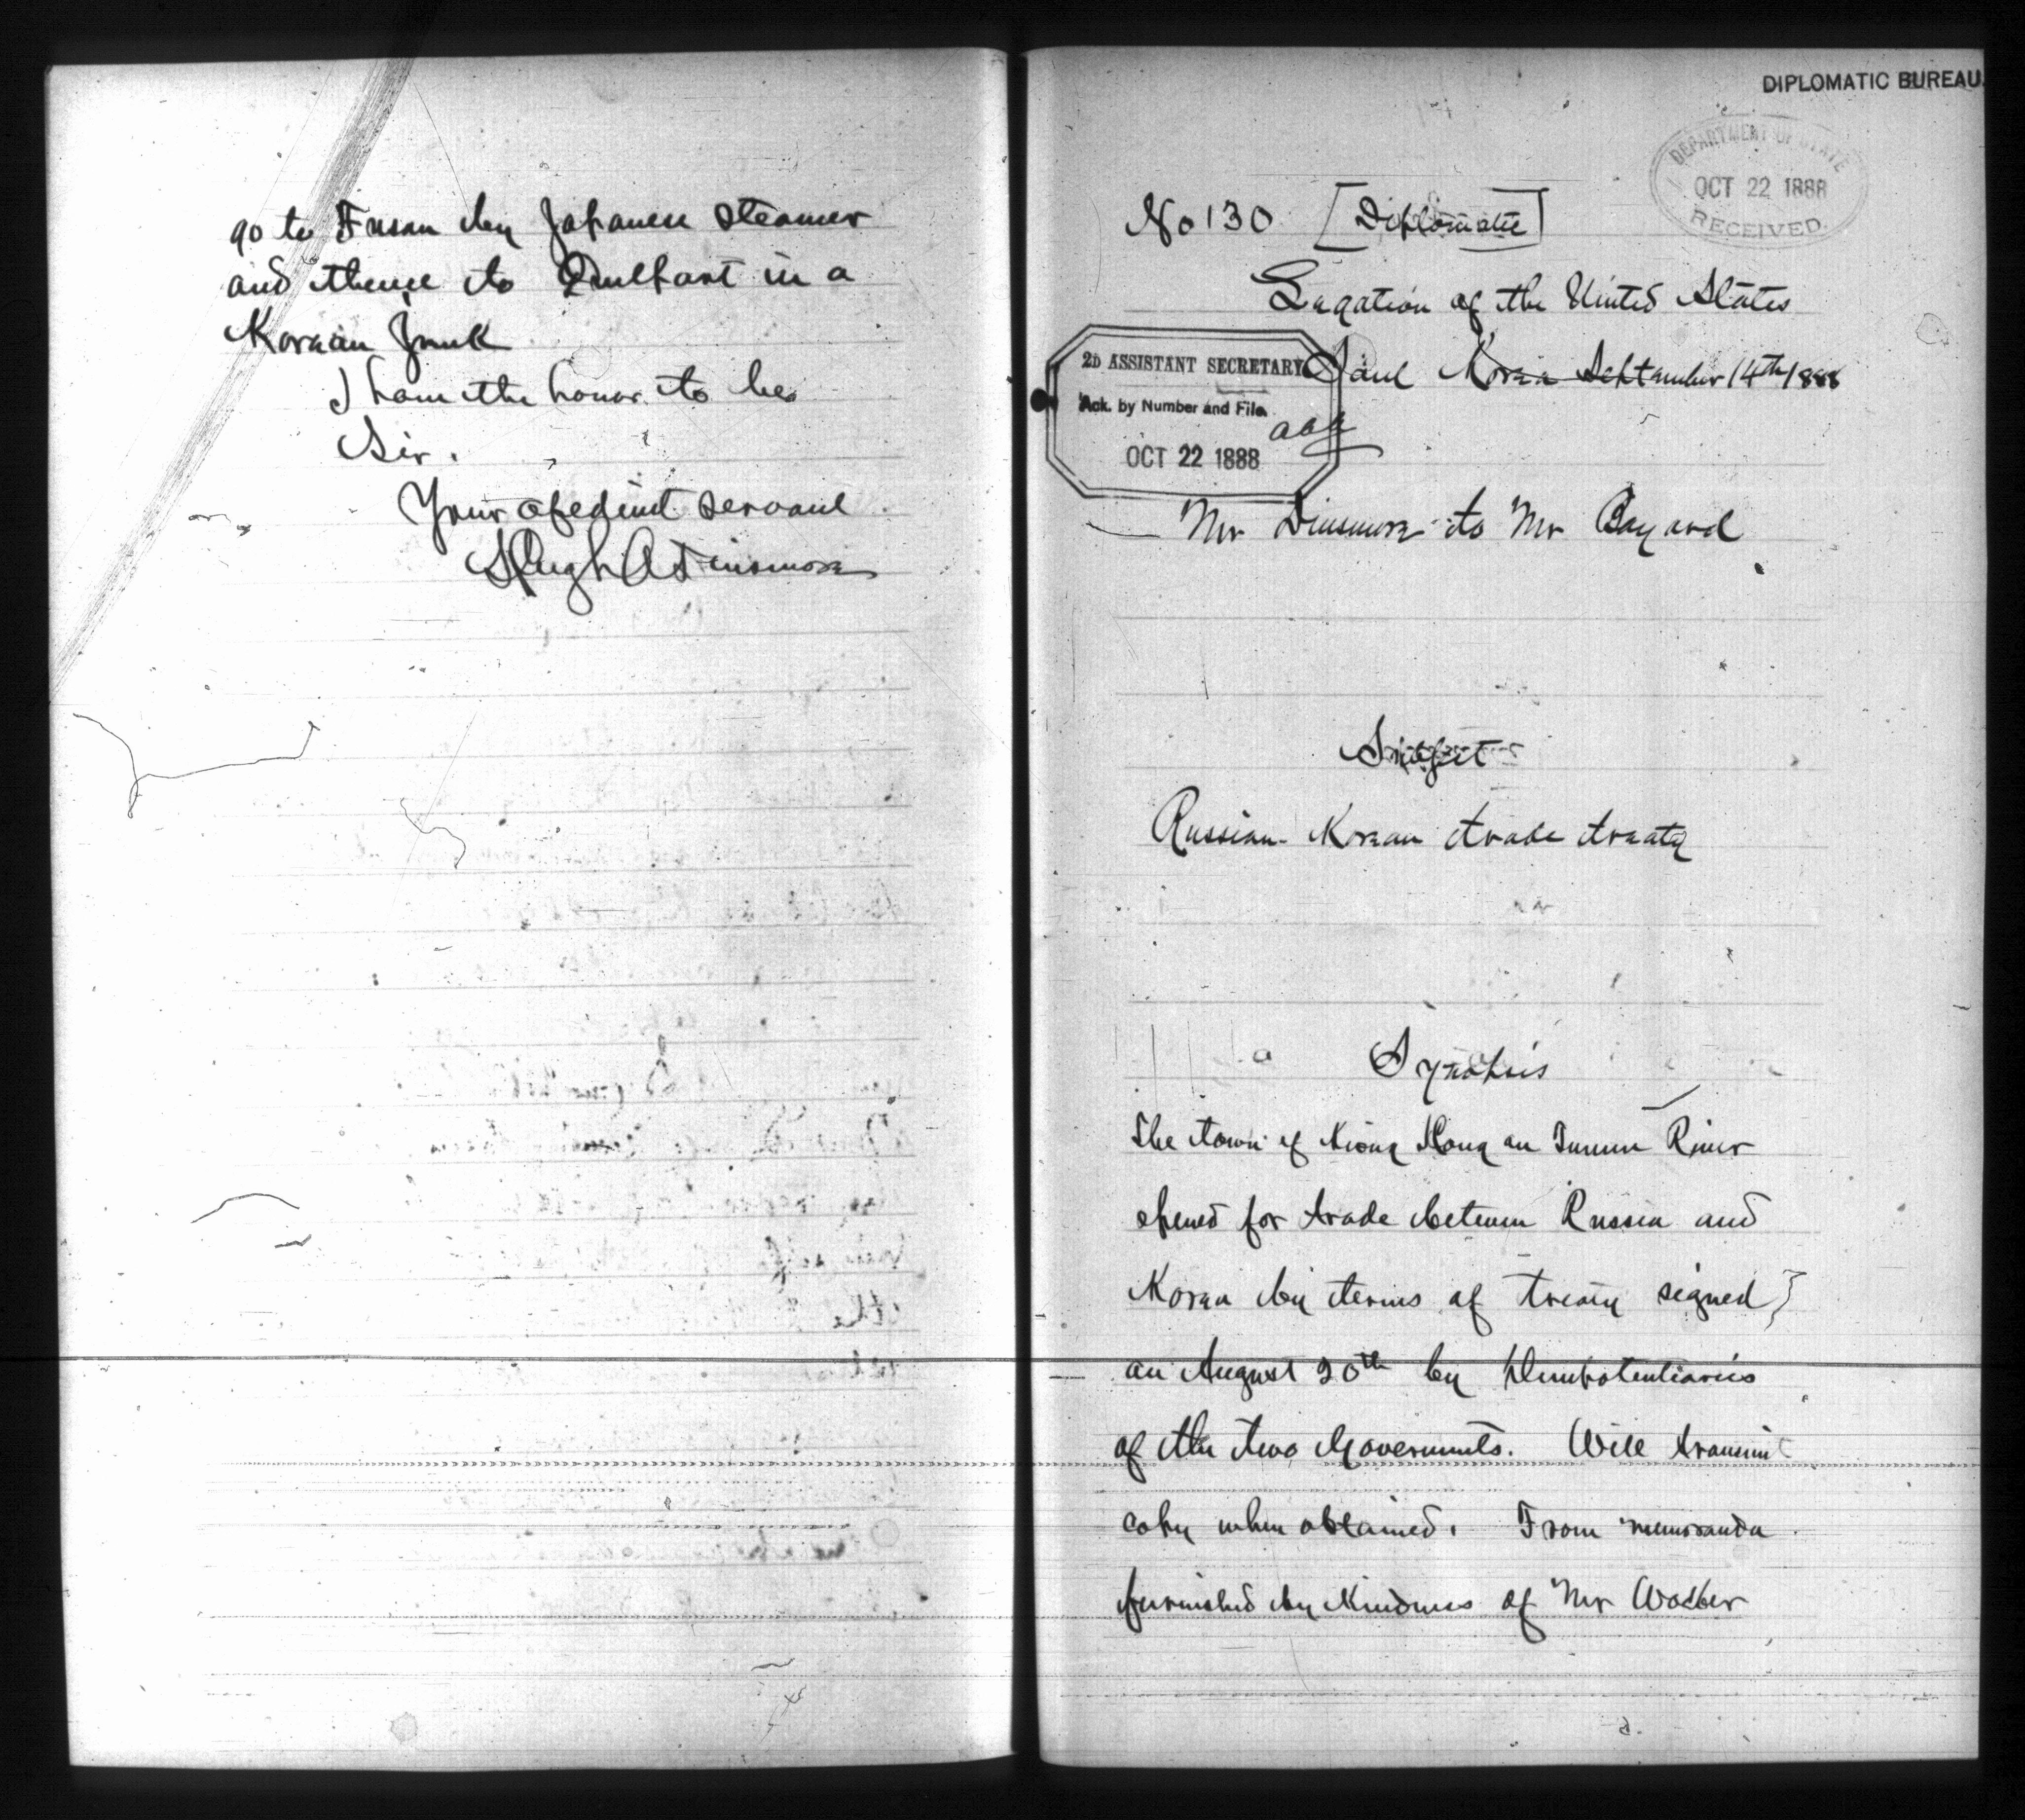 go to Fusan by Japanese steamer
and thence to Quelpart in a
Korean Junk
I have the honor to be
Sir.
Your obedient servant
Hugh A Dinsmore
DIPLOMATIC BUREAU.
DEPARTMENT OF STATE
OCT 22 1888
RECEIVED.
No 130 [Diplomatic]
Legation of the United States
Saul Korea September 14th 1888
2D ASSISTANT SECRETARY
Ack. by Number and File.
OCT 22 1888
Mr Dinsmore to Mr Bayard
Subject
Russian-Korean trade treaty
Synopsis
The town of Kiong Hong on Tumen River
opened for trade between Russia and
Korea by terms of treaty signed
on August 20th by Plenipotentiaries
of the two Governments. Will transmit
copy when obtained. From memoranda
furnished by kindness of Mr Waeber